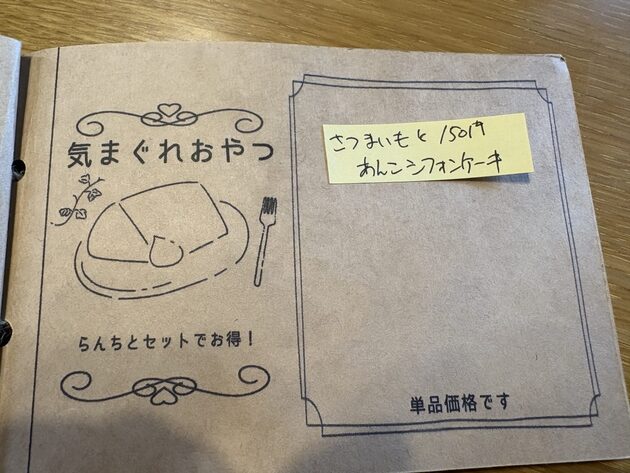 気まぐれおやつ
らんちとセットでお得！
さつまいもと 150円
あんこシフォンケーキ
単品価格です